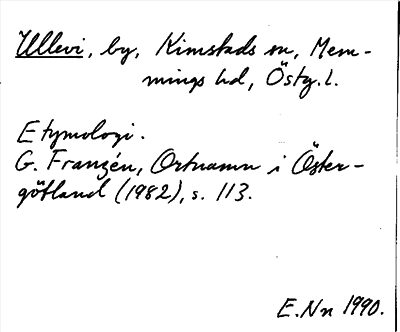 Ullevi, by, Kimstads sn, Mem-
mings hd, Östg.l.
Etymologi.
G. Franzén, Ortnamn i Öster-
götland (1982), s. 113.
E.Nn 1990.